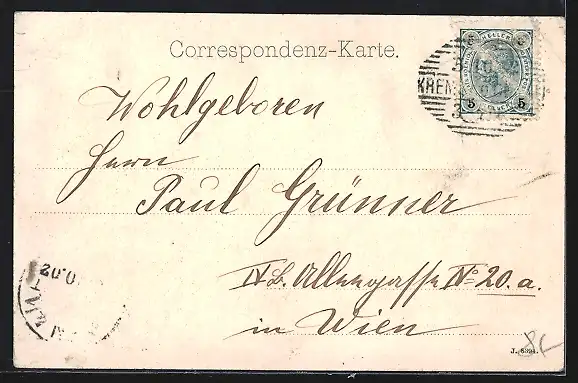 Correspondenz-Karte.
HELLER
5 5
KREM
Wohlgeboren
Herrn
Paul Grünner
IV. Alleegasse No 20. a.
in Wien
20.0
J. 6394.